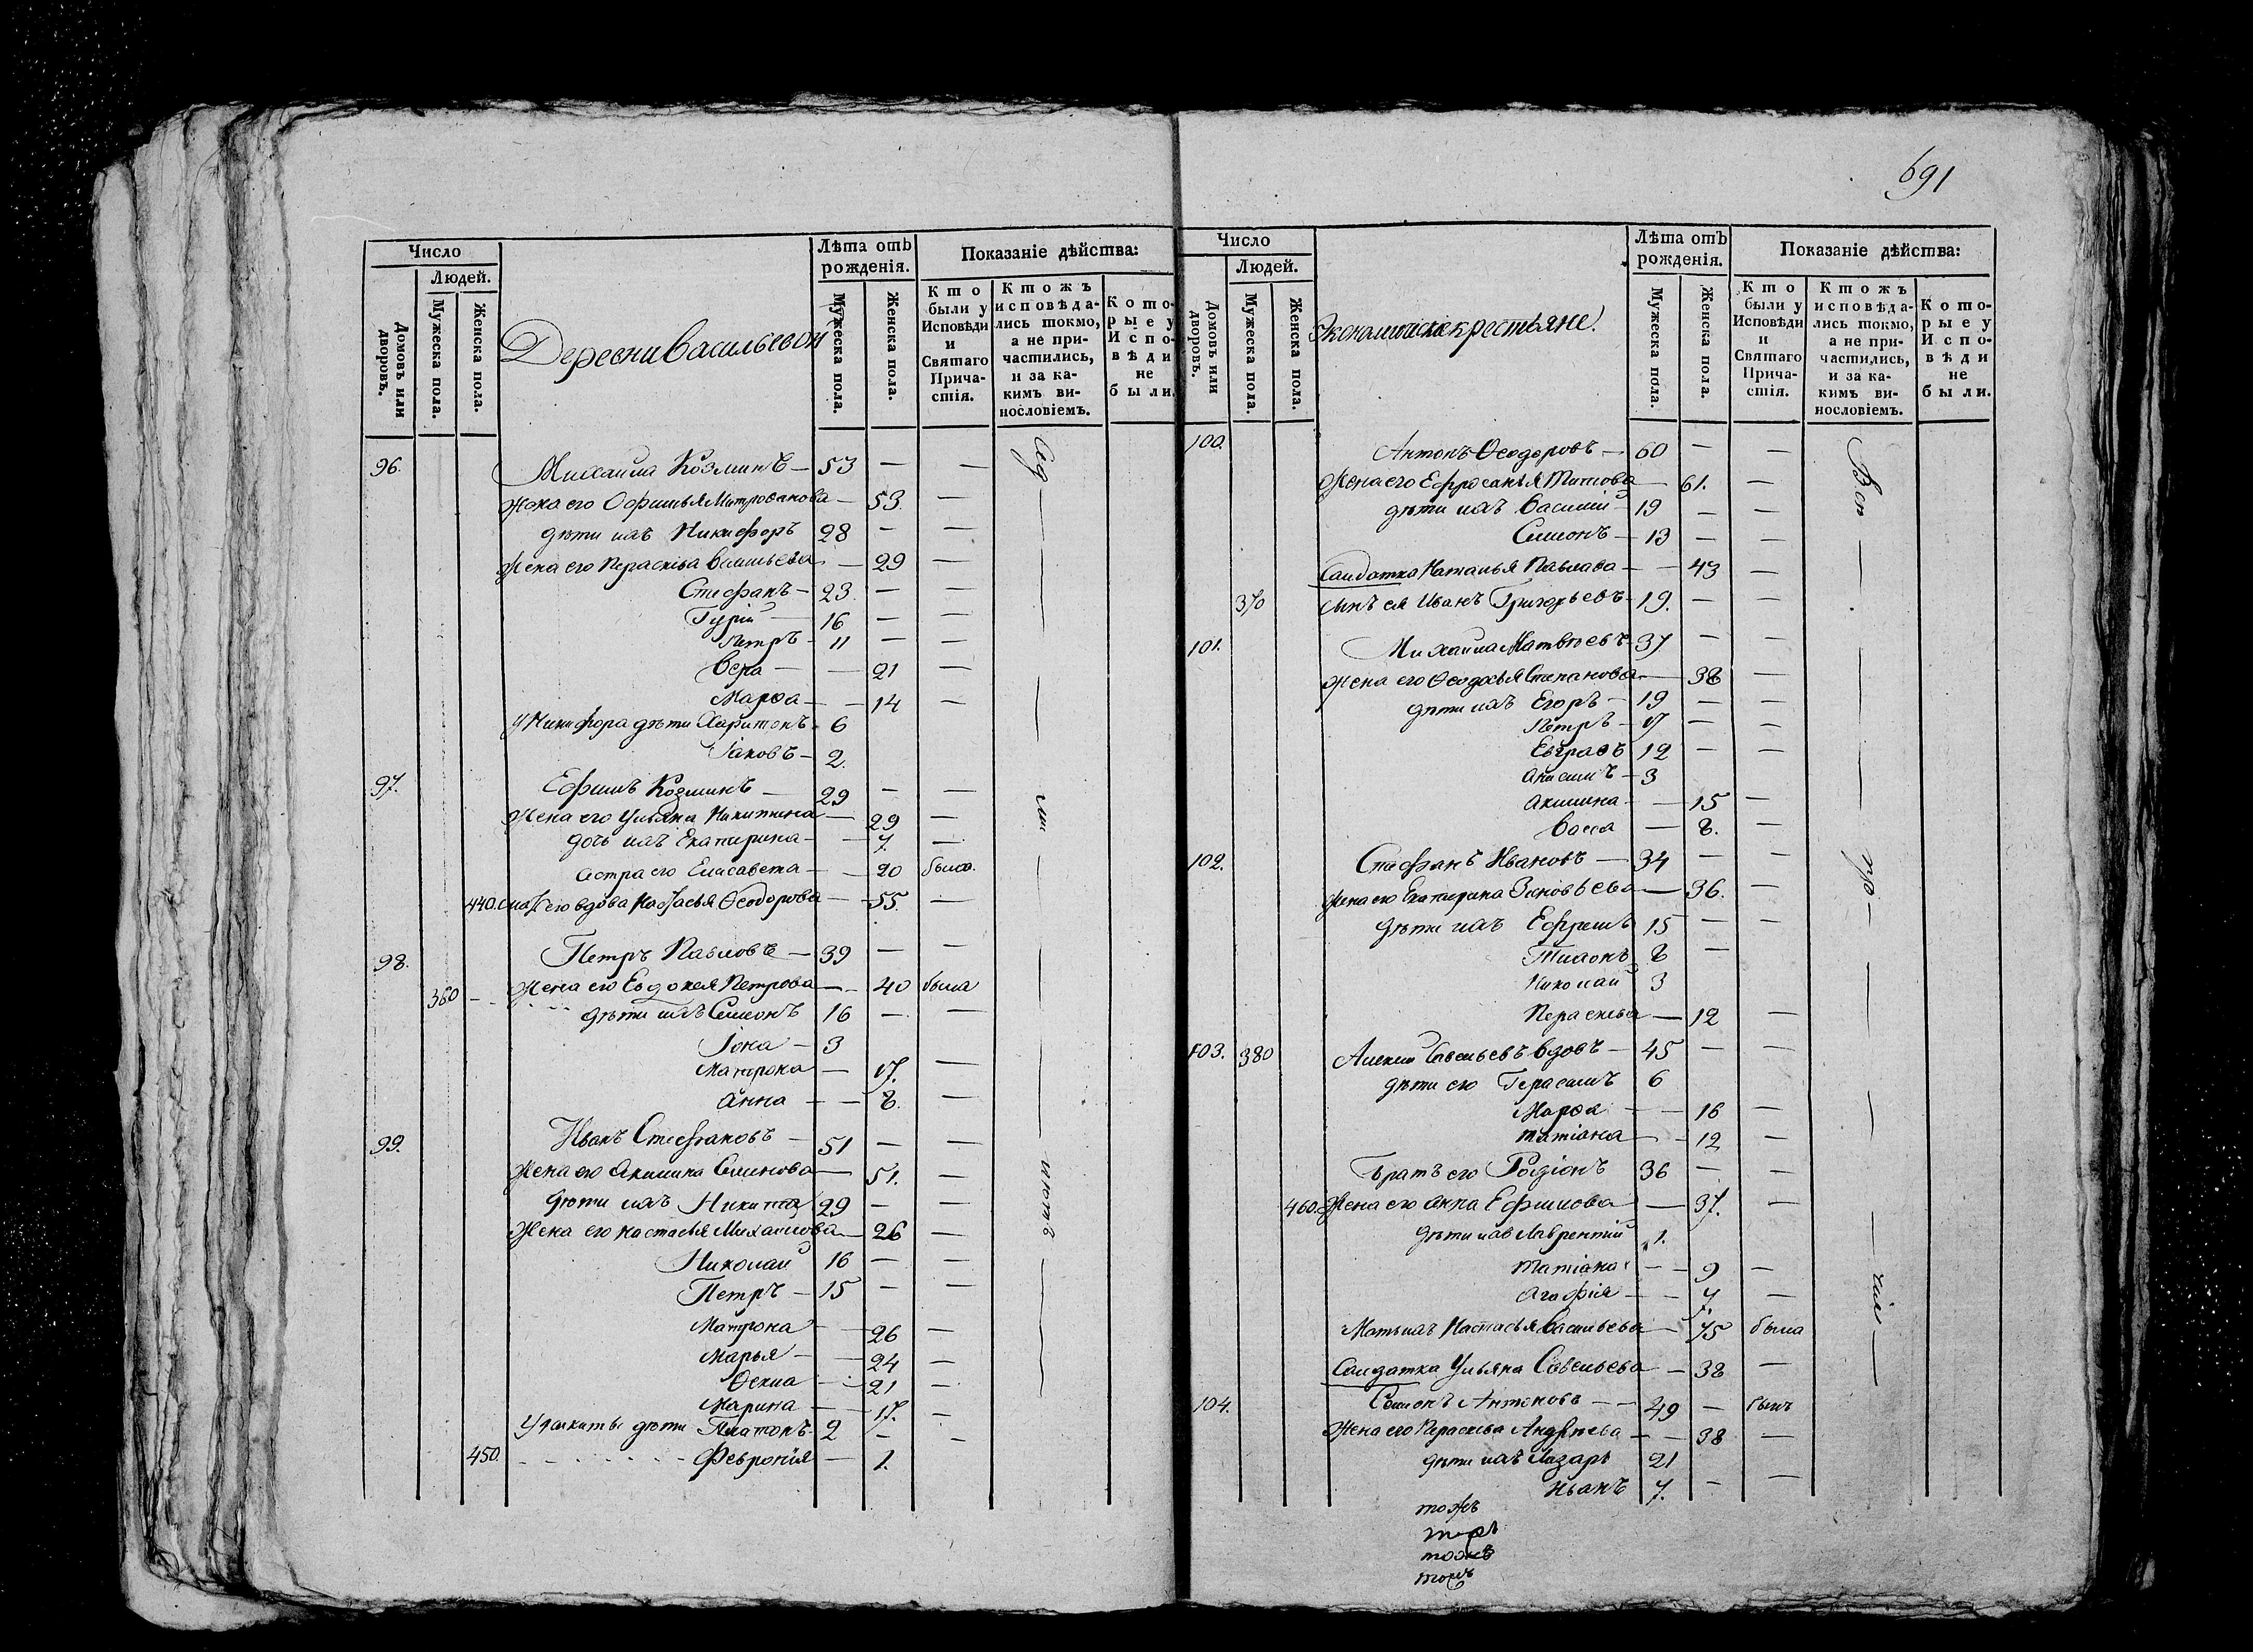 691
Число
Людей.
Домовъ или дворовъ.
Мужеска пола.
Женска пола.
Деревни Васильевой
Лѣта отъ рожденія.
Мужеска пола.
Женска пола.
Показаніе дѣйства:
Кто были у Исповѣди и Святаго Причастія.
Ктожъ исповѣдались токмо, а не причастились, и за какимъ винословіемъ.
Которые у Исповѣди не были.
96. Михайла Козминъ — 53 — —
Жена его Офимья Митрофанова — 53. —
дѣти ихъ Никифоръ 28 — —
Жена его Параскѣва Васильева — 29 —
Стефанъ — 23. — —
Гурій — 16 — —
Петръ — 11 — —
Вера — — 21 —
Марѳа — — 14 —
У Никифора дѣти Харитонъ — 6
Іаковъ — 2.
97. Ефимъ Козминъ — 29 — —
Жена его Ульяна Никитина — 29 —
дочь ихъ Екатерина — — 7. —
сестра его Елисавета — — 20 была.
440. мать его вдова Настасья Ѳеодорова — 55. —
98. Петръ Павловъ — 39 — —
360 Жена его Евдокея Петрова — 40 была
дѣти ихъ Симеонъ 16 — —
Іона — 3
Матрона — 17. —
Анна — — 8. —
99. Иванъ Стефановъ — 51 — —
Жена его Акилина Семенова — 51. —
дѣти ихъ Никита 29 — —
Жена его Настасья Михаилова — 26 —
Николай 16 — —
Петръ — 15 — —
Матрона — 26 —
Марья — — 24 —
Ѳекла — 21 —
Марина — 17. —
У Никиты дѣти Платонъ — 2 — —
450. Февронія — 1.
Число
Людей.
Домовъ или дворовъ.
Мужеска пола.
Женска пола.
Экономическіе крестьяне.
Лѣта отъ рожденія.
Мужеска пола.
Женска пола.
Показаніе дѣйства:
Кто были у Исповѣди и Святаго Причастія.
Ктожъ исповѣдались токмо, а не причастились, и за какимъ винословіемъ.
Которые у Исповѣди не были.
100. Антонъ Ѳеодоровъ — 60 — —
Жена его Ефросинья Титова — 61. —
дѣти ихъ Василій — 19 — —
Симеонъ — 13 — —
Салдатка Наталья Павлова — — 43 —
370 сынъ ея Иванъ Григорьевъ — 19. — —
101. Михайла Матвѣевъ — 37 — —
Жена его Ѳеодосья Степанова — 38 —
дѣти ихъ Егоръ — 19 — —
Петръ — 17 — —
Евграфъ 12 — —
Анисимъ — 3
Акилина — — 15 —
Васса — 8. —
102. Стефанъ Ивановъ — 34 — —
Жена его Екатерина Зиновьева — 36. —
дѣти ихъ Ефремъ 15 — —
Тихонъ 8 —
Николай 3
Параскева — 12 —
103. 380 Алексѣй Савельевъ вдовъ — 45 — —
дѣти его Герасимъ 6
Марѳа — — 16 —
Татіана — — 12 —
братъ его Родіонъ 36 — —
460. Жена его Анна Ефимова — 37. —
дѣти ихъ Лаврентій 1.
Татіана — — 9 —
Агафія — — 7 —
Мать ихъ Настасья Васильева — 75 была
Салдатка Ульяна Савельева — — 38 —
104. Семенъ Антоновъ — — 49 — былъ
Жена его Параскева Андреева — — 38 —
дѣти ихъ Лазарь 21
Иванъ 7. — —